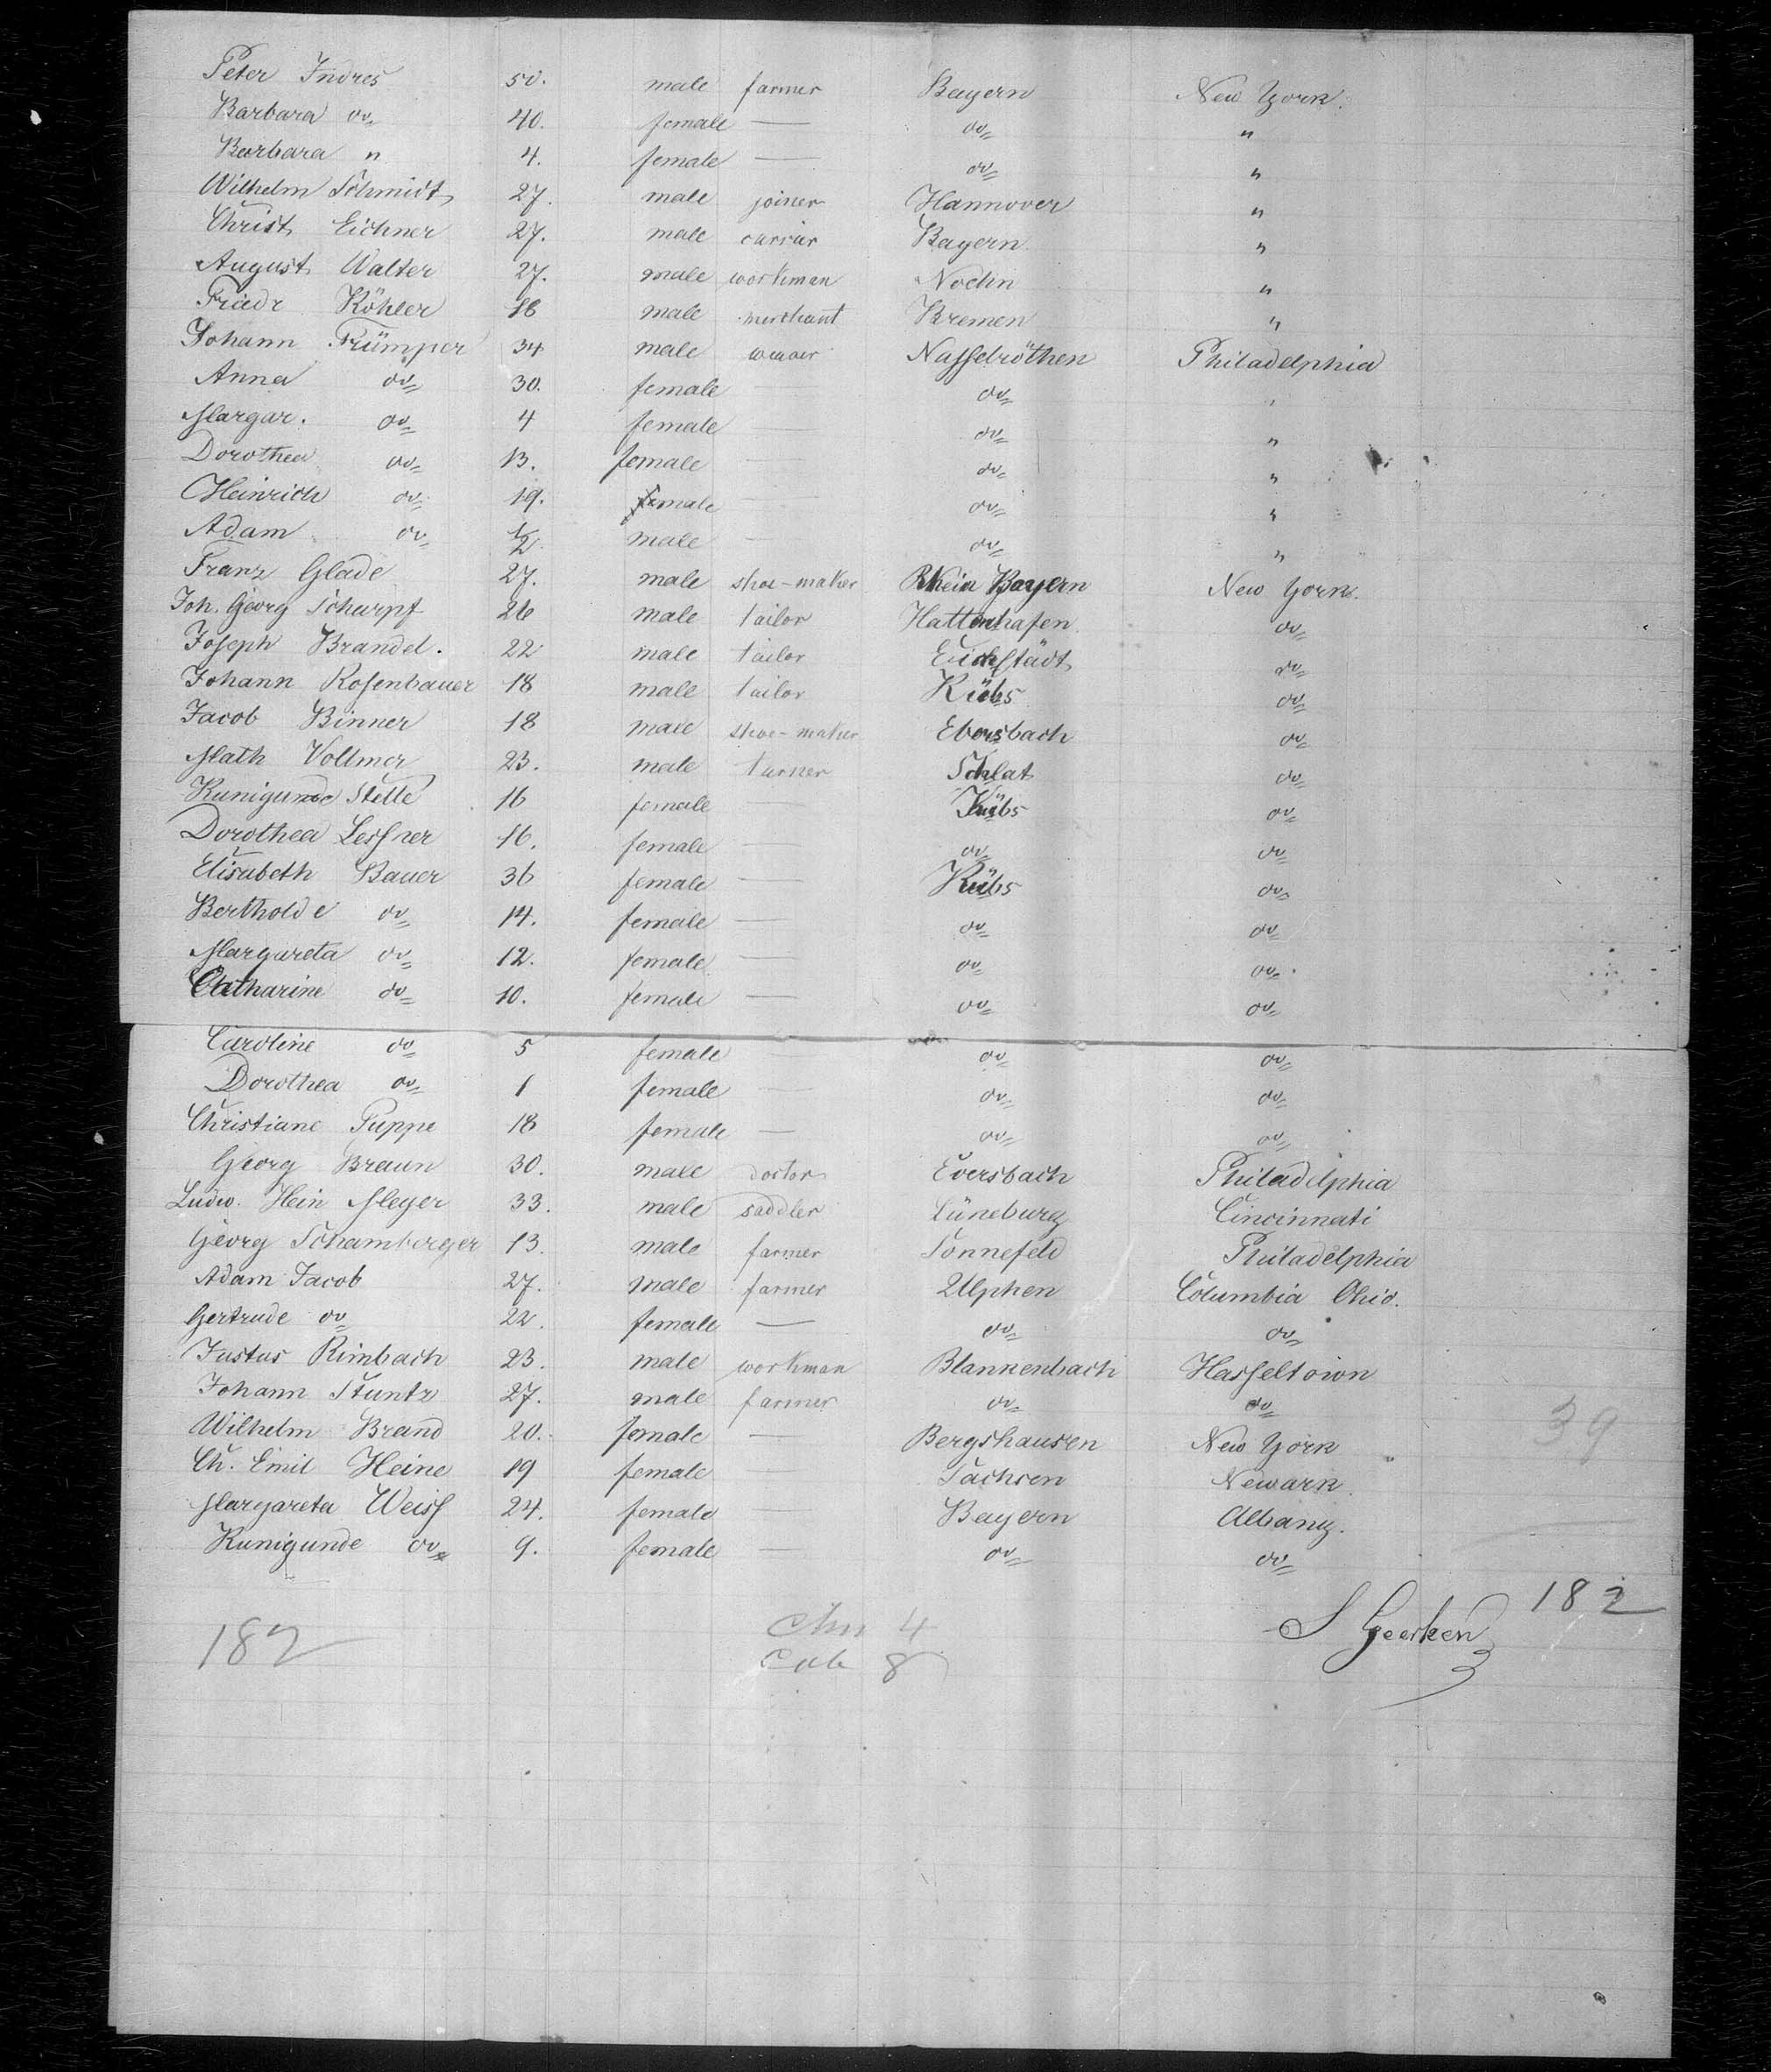 Peter Indres 50. male farmer Bayern New York.
Barbara do 40. female — do "
Barbara " 4. female — do "
Wilhelm Schmidt 27. male joiner Hannover "
Christ. Eichner 27. male currier Bayern "
August Walter 27. male workman "
Friedr Köhler 18 male merchant Bremen "
Johann Trümper 34 male weaver Nasselröthen Philadelphia
Anna do 30. female — do "
Margar. do 4 female — do "
Dorothea do 13. female — do "
Heinrich do 19. male — do "
Adam do 1/2 male — do "
Franz Glade 27. male shoe-maker Rhein Bayern New York.
Joh. Georg Scharpf 26 male tailor Hattenhafen do
Joseph Brandel. 22 male tailor Eichstädt do
Johann Rosenbauer 18 male tailor Kübs do
Jacob Binner 18 male shoe-maker Ebersbach do
Math Vollmer 23. male turner Schlat do
Kunigunde Stelle 16 female — Kübs do
Dorothea Lessner 16. female — do do
Elisabeth Bauer 36 female — Kübs do
Bertholde do 14. female — do do
Margareta do 12. female — do do
Catharine do 10. female — do do
Caroline do 5 female — do do
Dorothea do 1 female — do do
Christiane Puppe 18 female — do do
Georg Braun 30. male doctor Eversbach Philadelphia
Ludw. Hein Meyer 33. male saddler Lüneburg Cincinnati
Georg Schamberger 13. male farmer Sonnefeld Philadelphia
Adam Jacob 27. male farmer Ulphen Columbia Ohio.
Gertrude do 22. female — do do
Justus Rimbach 23. male workman Blankenbach Hasseltown
Johann Stuntz 27. male farmer do do
Wilhelm Brand 20. female — Bergshausen New York
Ch. Emil Heine 19 female — Sachsen Newark.
Margareta Weiss 24. female — Bayern Albany.
Kunigunde do 9. female — do do
39
182
S Geerken
182
4
Cab 8